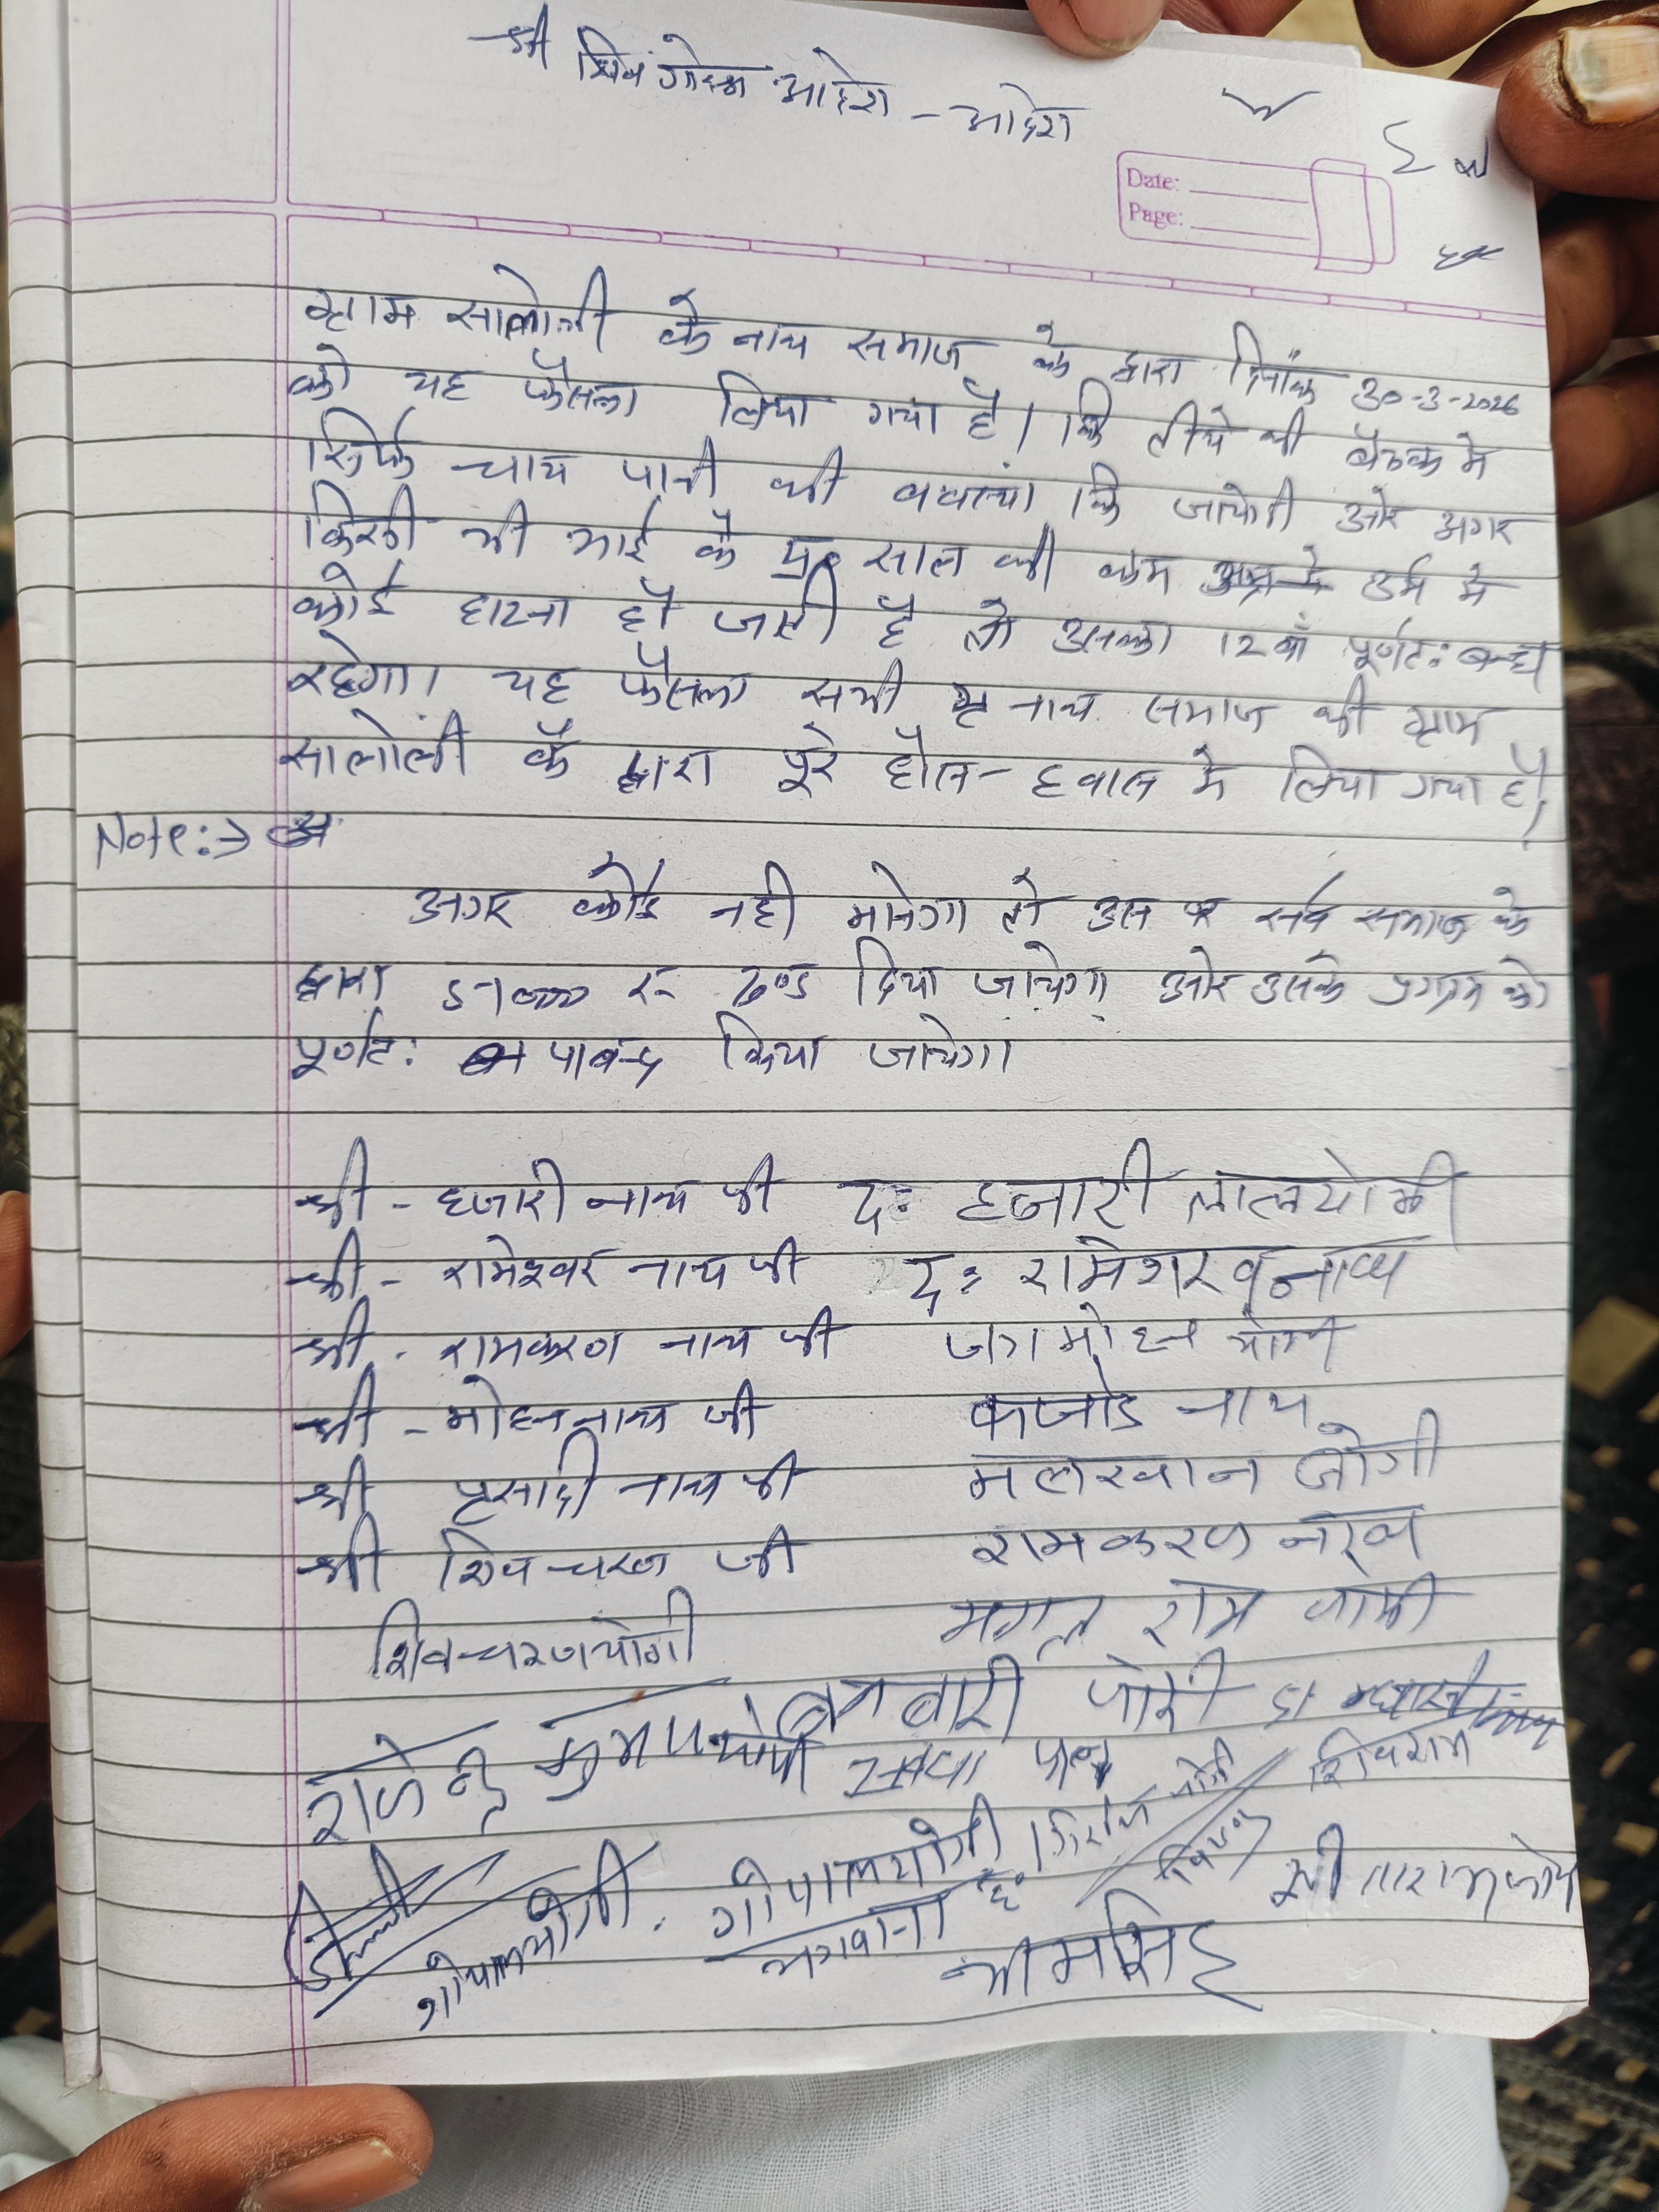 श्री शिव गोरख आदेश - आदेश
Date:
Page:
ग्राम सालोली के नाथ समाज के द्वारा दिनांक 30-3-2026
को यह फैसला लिया गया है। कि तीये की बैठक मे
सिर्फ चाय पानी की ववस्था कि जायेगी और अगर
किसी भी भाई के साल की कम उर्म मे
कोई घटना हो जाती है तो उसका 12वाँ पूर्णत: बन्ध
रहेगा। यह फैसला सभी नाथ समाज की ग्राम
सालोली के द्वारा पूरे होस-हवास मे लिया गया है।
Note:→
अगर कोई नही मानेगा तो उस पर सर्व समाज के
द्वारा रू दण्ड दिया जायेगा और उसके को
पूर्णत: पाबन्द किया जायेगा
श्री - हजारी नाथ जी द: हजारी लाल योगी
श्री - रामेश्वर नाथ जी द: रामेशरवनाथ
श्री - रामकरण नाथ जी जगमोहन योगी
श्री - मोहननाथ जी कजोड नाथ
श्री प्रसादी नाथ जी मलखान जोगी
श्री शिवचरण जी रामकरण
शिवचरणयोगी राम
राजेन्द्र कुमार योगी बनवारी जोगी
शिवराम
गोपालयोगी गोपालयोगी
भगवाना सीताराम
भीमसिंह